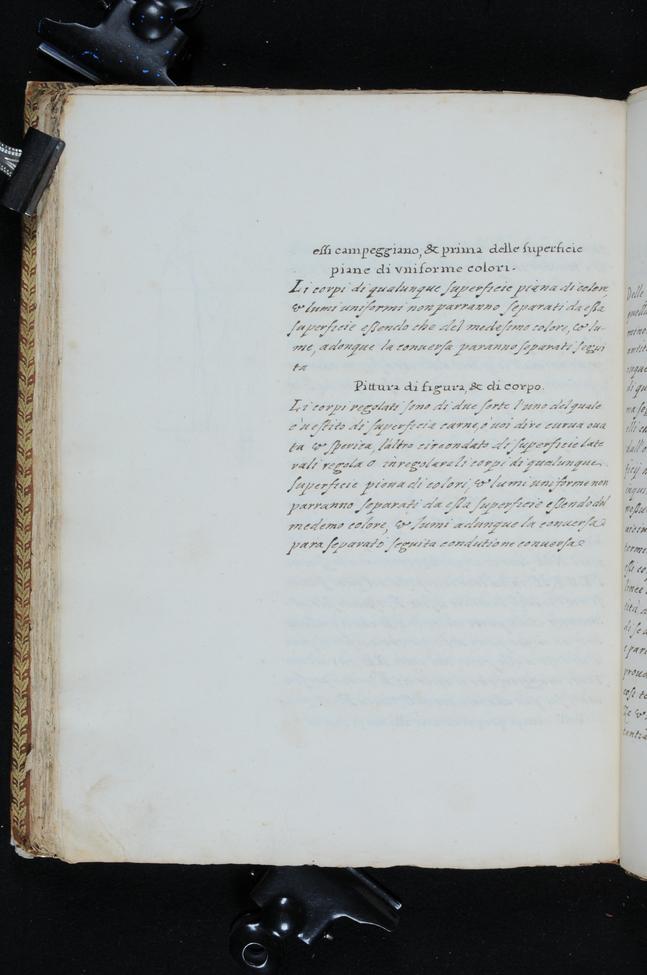 essi campeggiano, & prima delle superficie
piane di vniforme colori.
Li corpi di qualunque superficie piana di colore,
& lumi uniformi non parranno separati da essa
superficie essendo che del medesimo colore, & lu-
me, adonque la conuersa paranno separati segui
ta
Pittura di figura, & di corpo.
Li corpi regolati sono di due sorte l'uno del quale
è uestito di superficie carue, ò uoi dire curua oua
ta & sperica, l'altro circondato di superficie late
rali regola o inregolarali corpi di qualunque
superficie piana di colori, & lumi uniforme non
parranno separati da essa superficie essendo del
medemo colore, & lumi adunque la conuersa
para separato seguita condutione conuersa